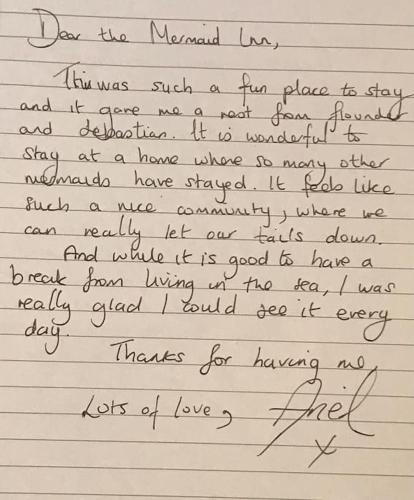 Dear the Mermaid Inn,
This was such a fun place to stay
and it gave me a rest from flounder
and sebastian. It is wonderful to
stay at a home where so many other
mermaids have stayed. It feels like
such a nice community, where we
can really let our tails down.
And while it is good to have a
break from living in the sea, I was
really glad I could see it every
day.
Thanks for having me,
Lots of love, Ariel
x